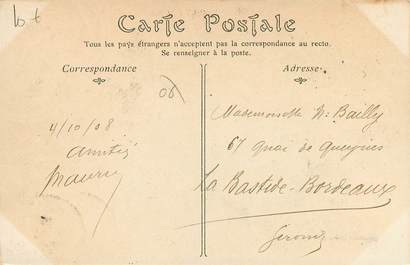 lot
Carte Postale
Tous les pays étrangers n'acceptent pas la correspondance au recto.
Se renseigner à la poste.
Correspondance
Adresse
06
4/10/08
Amitiés
Mademoiselle N. Bailly
67 quai de Queyries
La Bastide-Bordeaux
Gironde